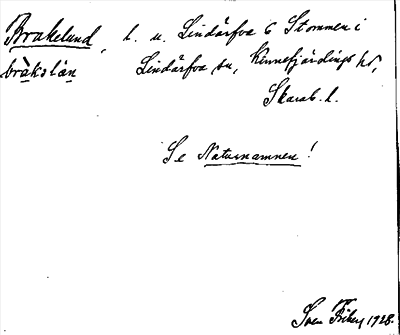 Brakelund, l. u. Lindärfva 6 Stommen i
bràkəlán Lindärfva sn, Kinnefjärdings hd,
Skarab. l.
Se Naturnamnen!
Sven Friberg 1928.